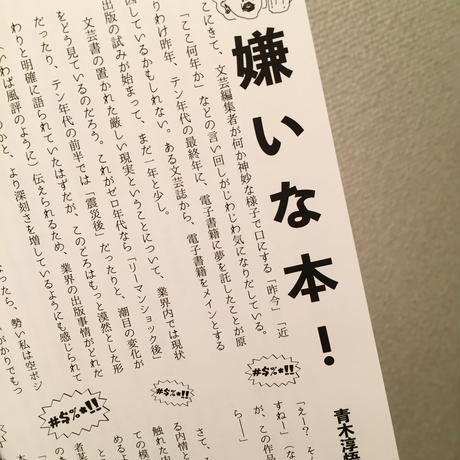 嫌いな本!
こにきて、文芸編集者が何か神妙な様子で口にする「昨今」「近
「ここ何年か」などの言い回しがじわじわ気になりだしている。
りわけ昨年、テン年代の最終年に、電子書籍に夢を託したことが原
因しているかもしれない。ある文芸誌から、電子書籍をメインとする
出版の試みが始まって、まだ一年と少し。
文芸書の置かれた厳しい現実ということについて、業界内では現状
をどう見ているのだろう。これがゼロ年代なら「リーマンショック後」
だったり、テン年代の前半では「震災後」だったりと、潮目の変化が
りと明確に語られていたはずだが、このごろはもっと漠然とした形
いわば風評のように)伝えられるため、業界の出版事情がどれた
かと、より深刻さを増しているようにも感じられて
なったら、勢い私は空ポジ
がかりでもっ
#$%*!!
#$%*!!
#$%*!!
青木淳悟
「えー? そ
すねー」(な
が、この作品
ら――」
さて、こ
る内情と
触れた内
ての模
めるよ
とに
者基